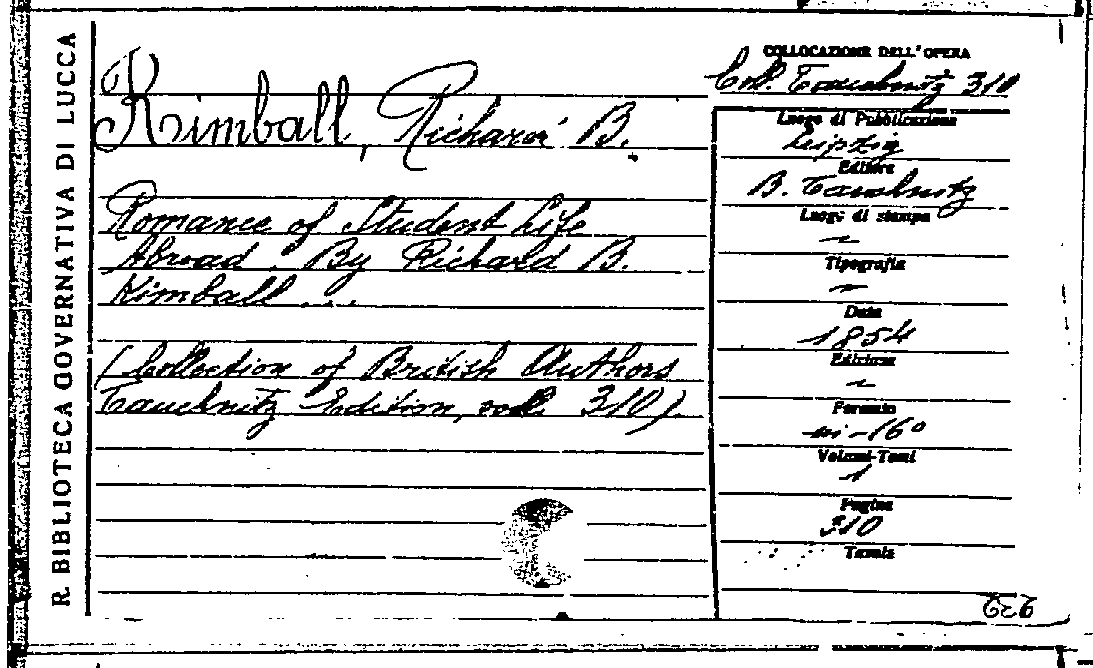 R. BIBLIOTECA GOVERNATIVA DI LUCCA
Kimball, Richard B.
Romance of Student Life
Abroad. By Richard B.
Kimball ...
(Collection of British Authors
Tauchnitz Edition, vol. 310)
COLLOCAZIONE DELL'OPERA
Coll. Tauchnitz 310
Luogo di Pubblicazione
Leipzig
Editore
B. Tauchnitz
Luogo di stampa
~
Tipografia
~
Data
1854
Edizione
~
Formato
in-16°
Volumi-Tomi
1
Pagine
310
Tavole